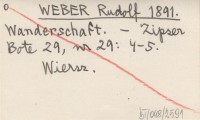 WEBER Rudolf 1891.
Wanderschaft. - Zipser
Bote 29, nr 29: 4-5.
Wiersz.